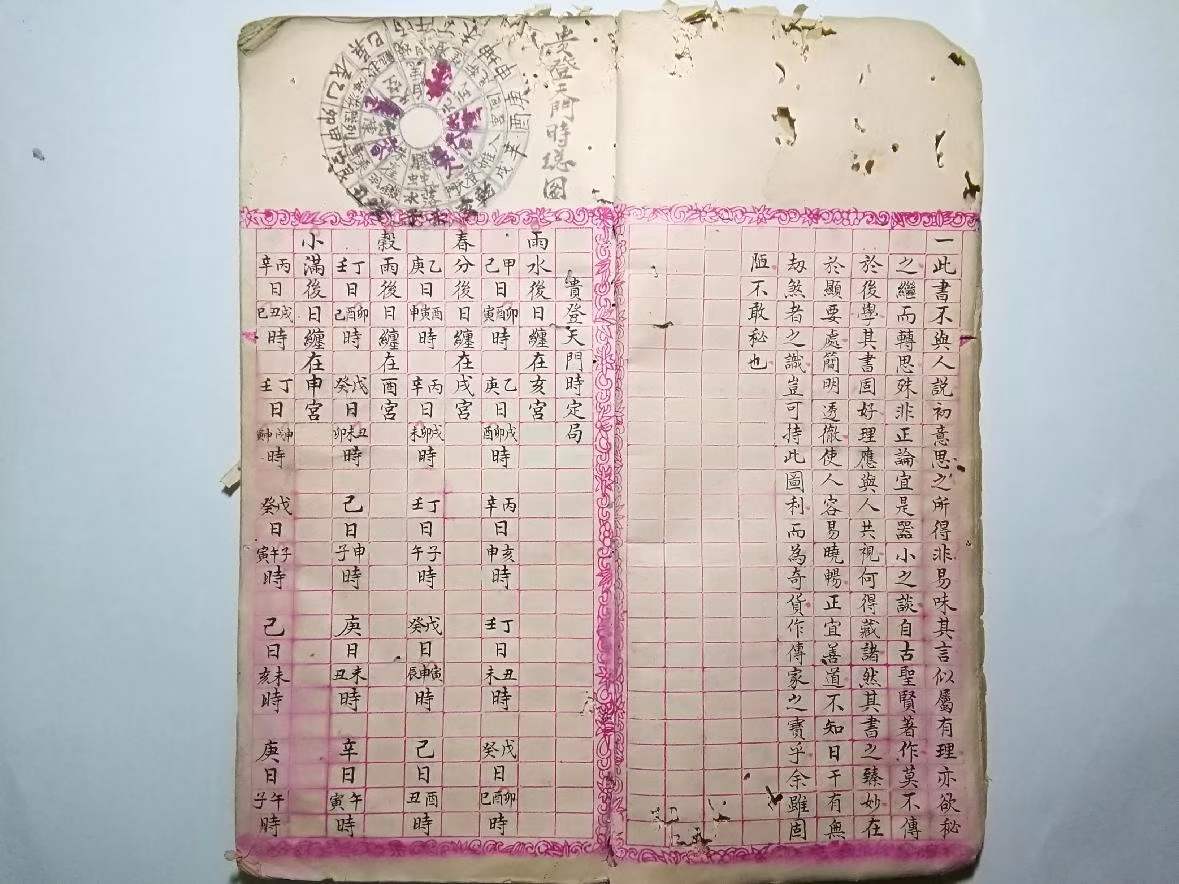 一此書不與人説初意思之所得非易味其言似屬有理亦欲秘
之繼而轉思殊非正論宜是器小之談自古聖賢著作莫不傳
於後學其書固好理應與人共視何得藏諸然其書之臻妙在
於顯要處簡明透徹使人容易曉暢正宜善道不知日干有無
劫煞者之識豈可持此圖利而為奇貨作傳家之寶乎余雖固
陋不敢秘也
貴登天門時總図
貴登天門時定局
雨水後日纏在亥宮
甲己日卯寅時 乙庚日戌卯酉時 丙辛日亥申時 丁壬日丑未時 戊癸日卯酉巳時
春分後日纏在戌宮
乙庚日酉寅申時 丙辛日戌卯未時 丁壬日子午時 戊癸日寅申辰時 己日酉丑時
穀雨後日纏在酉宮
丁壬日卯酉巳時 戊癸日丑未卯時 己日申子時 庚日未丑時 辛日午寅時
小滿後日纏在申宮
丙辛日戌丑巳時 丁壬日申寅時 戊癸日子午寅時 己日未亥時 庚日午子時